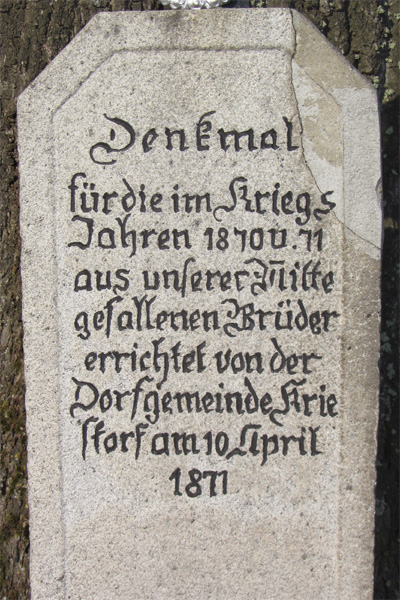 Denkmal
für die im Kriegs
Jahren 1870 u. 71
aus unserer Mitte
gefallenen Brüder
errichtet von der
Dorfgemeinde Krie
storf am 10 April
1871